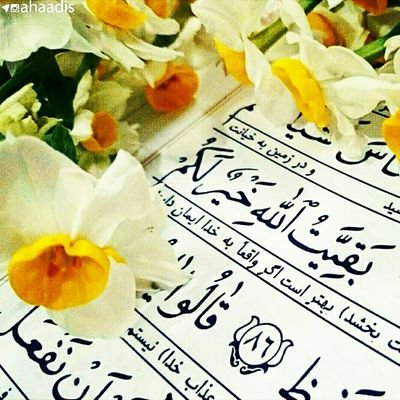 ahaadis
و در زمین به خیانت
بَقِيَّتُ ٱللَّهِ خَيْرٌ لَكُمْ
بخشد) بهتر است اگر واقعاً به خدا ایمان
قَالُوا
۸۶
عذاب خدا) نیستم
أَنْ نَفْعَلَ